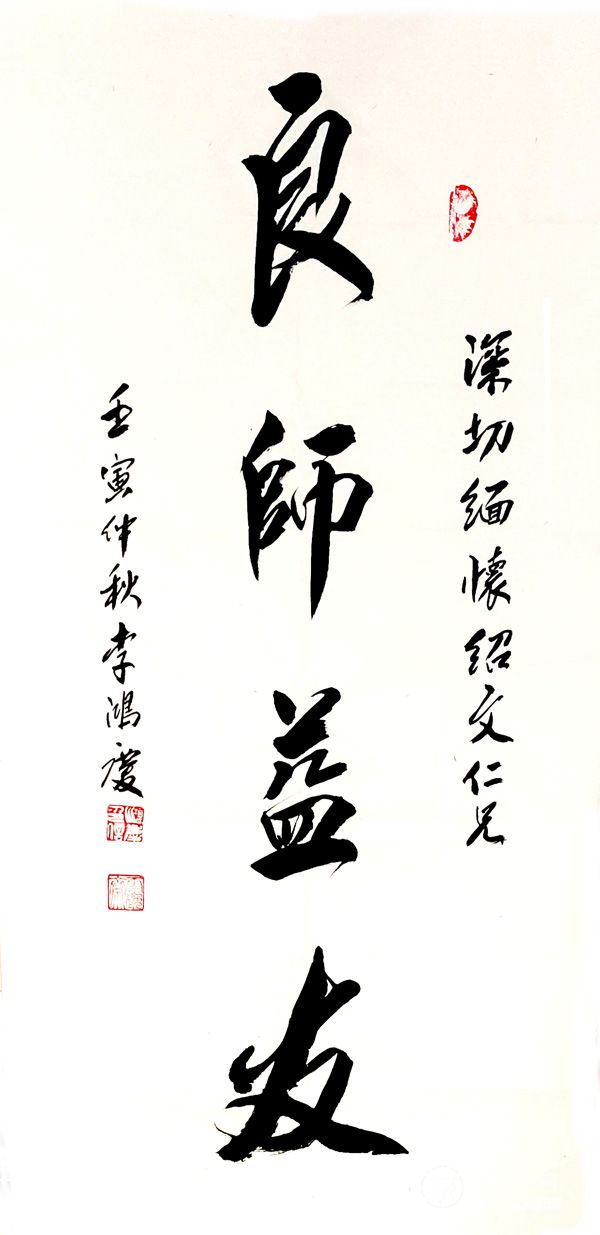 深切缅懷绍文仁兄
良師益友
壬寅仲秋李鸿慶